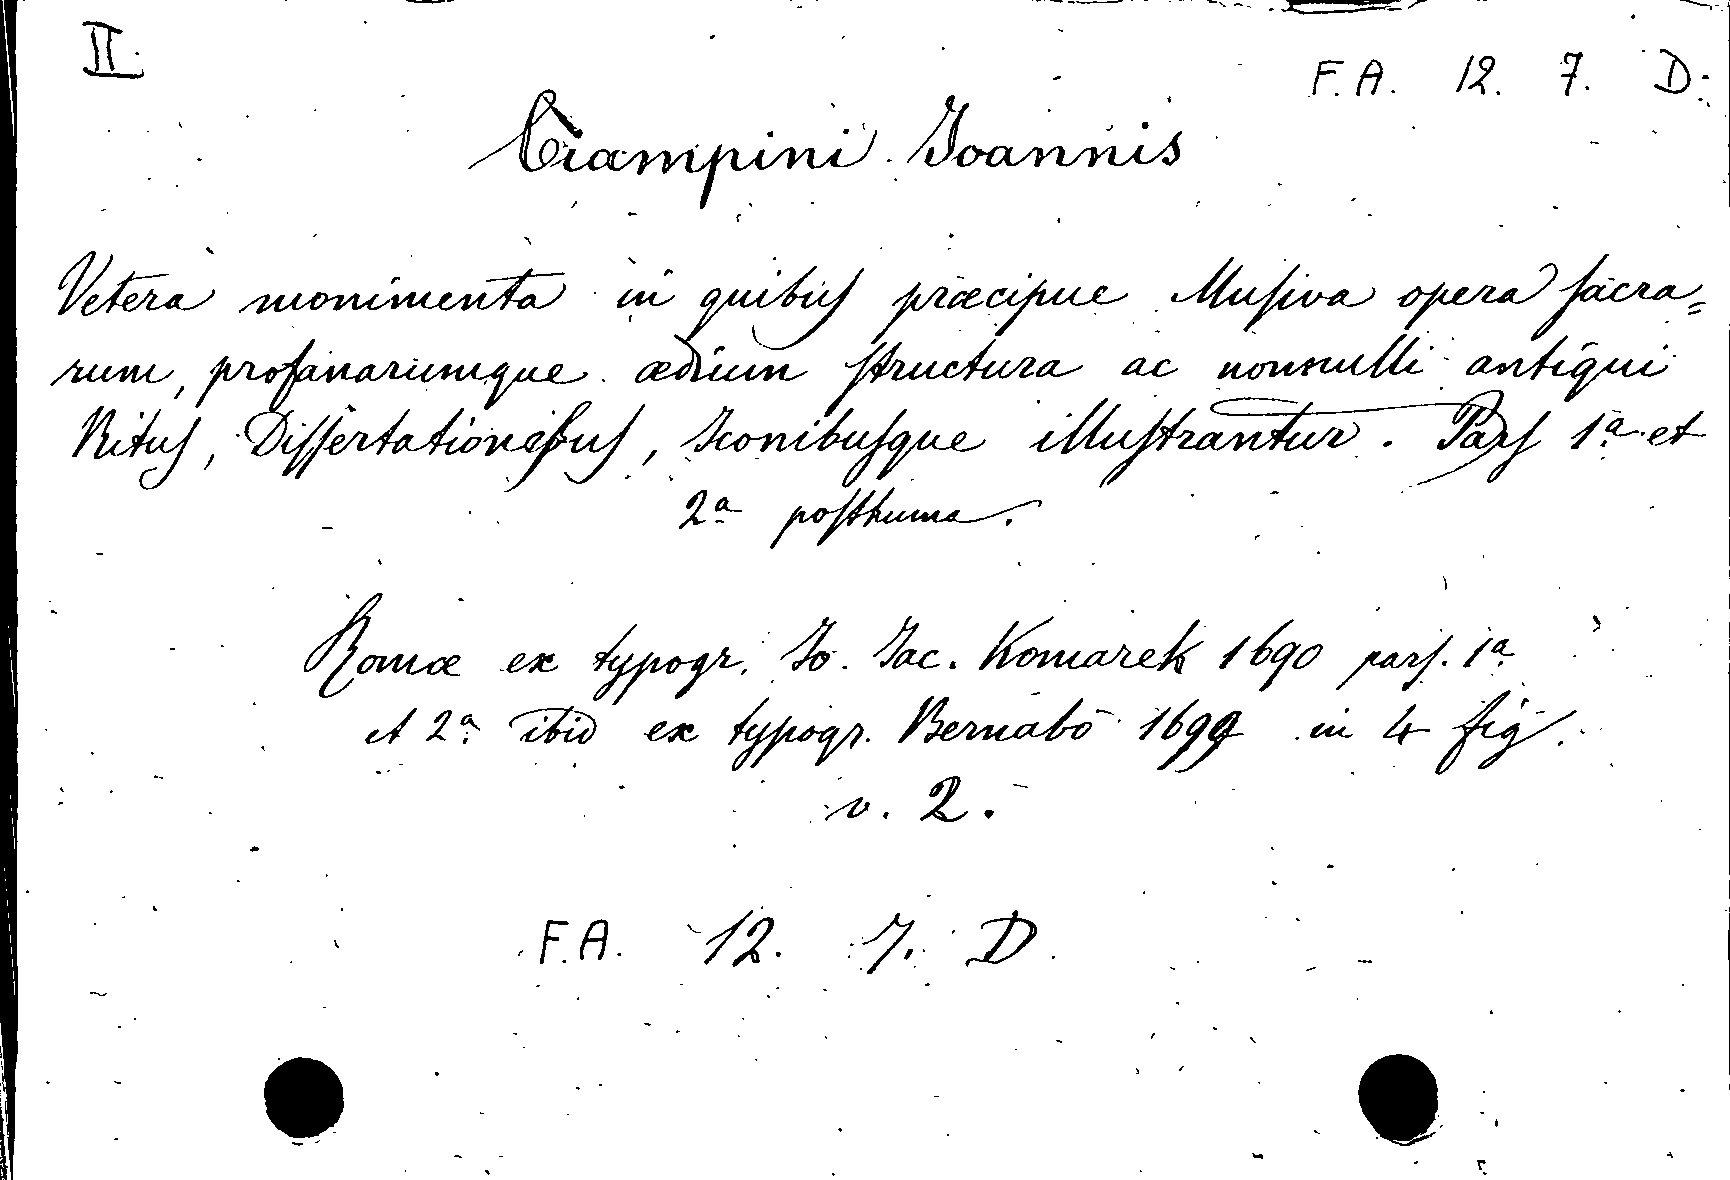 II.
F.A. 12. 7. D.
Ciampini Ioannis
Vetera monimenta in quibus præcipue Musiva opera sacra=
rum, profanarumque ædium structura ac nonnulli antiqui
Ritus, Dissertationibus, Iconibusque illustrantur. Pars 1ª et
2ª posthuma.
Romæ ex typogr. Io. Iac. Komarek 1690 pars. 1ª
et 2ª ibid ex typogr. Bernabò 1699 in 4 fig.
v. 2.
F.A. 12. 7. D